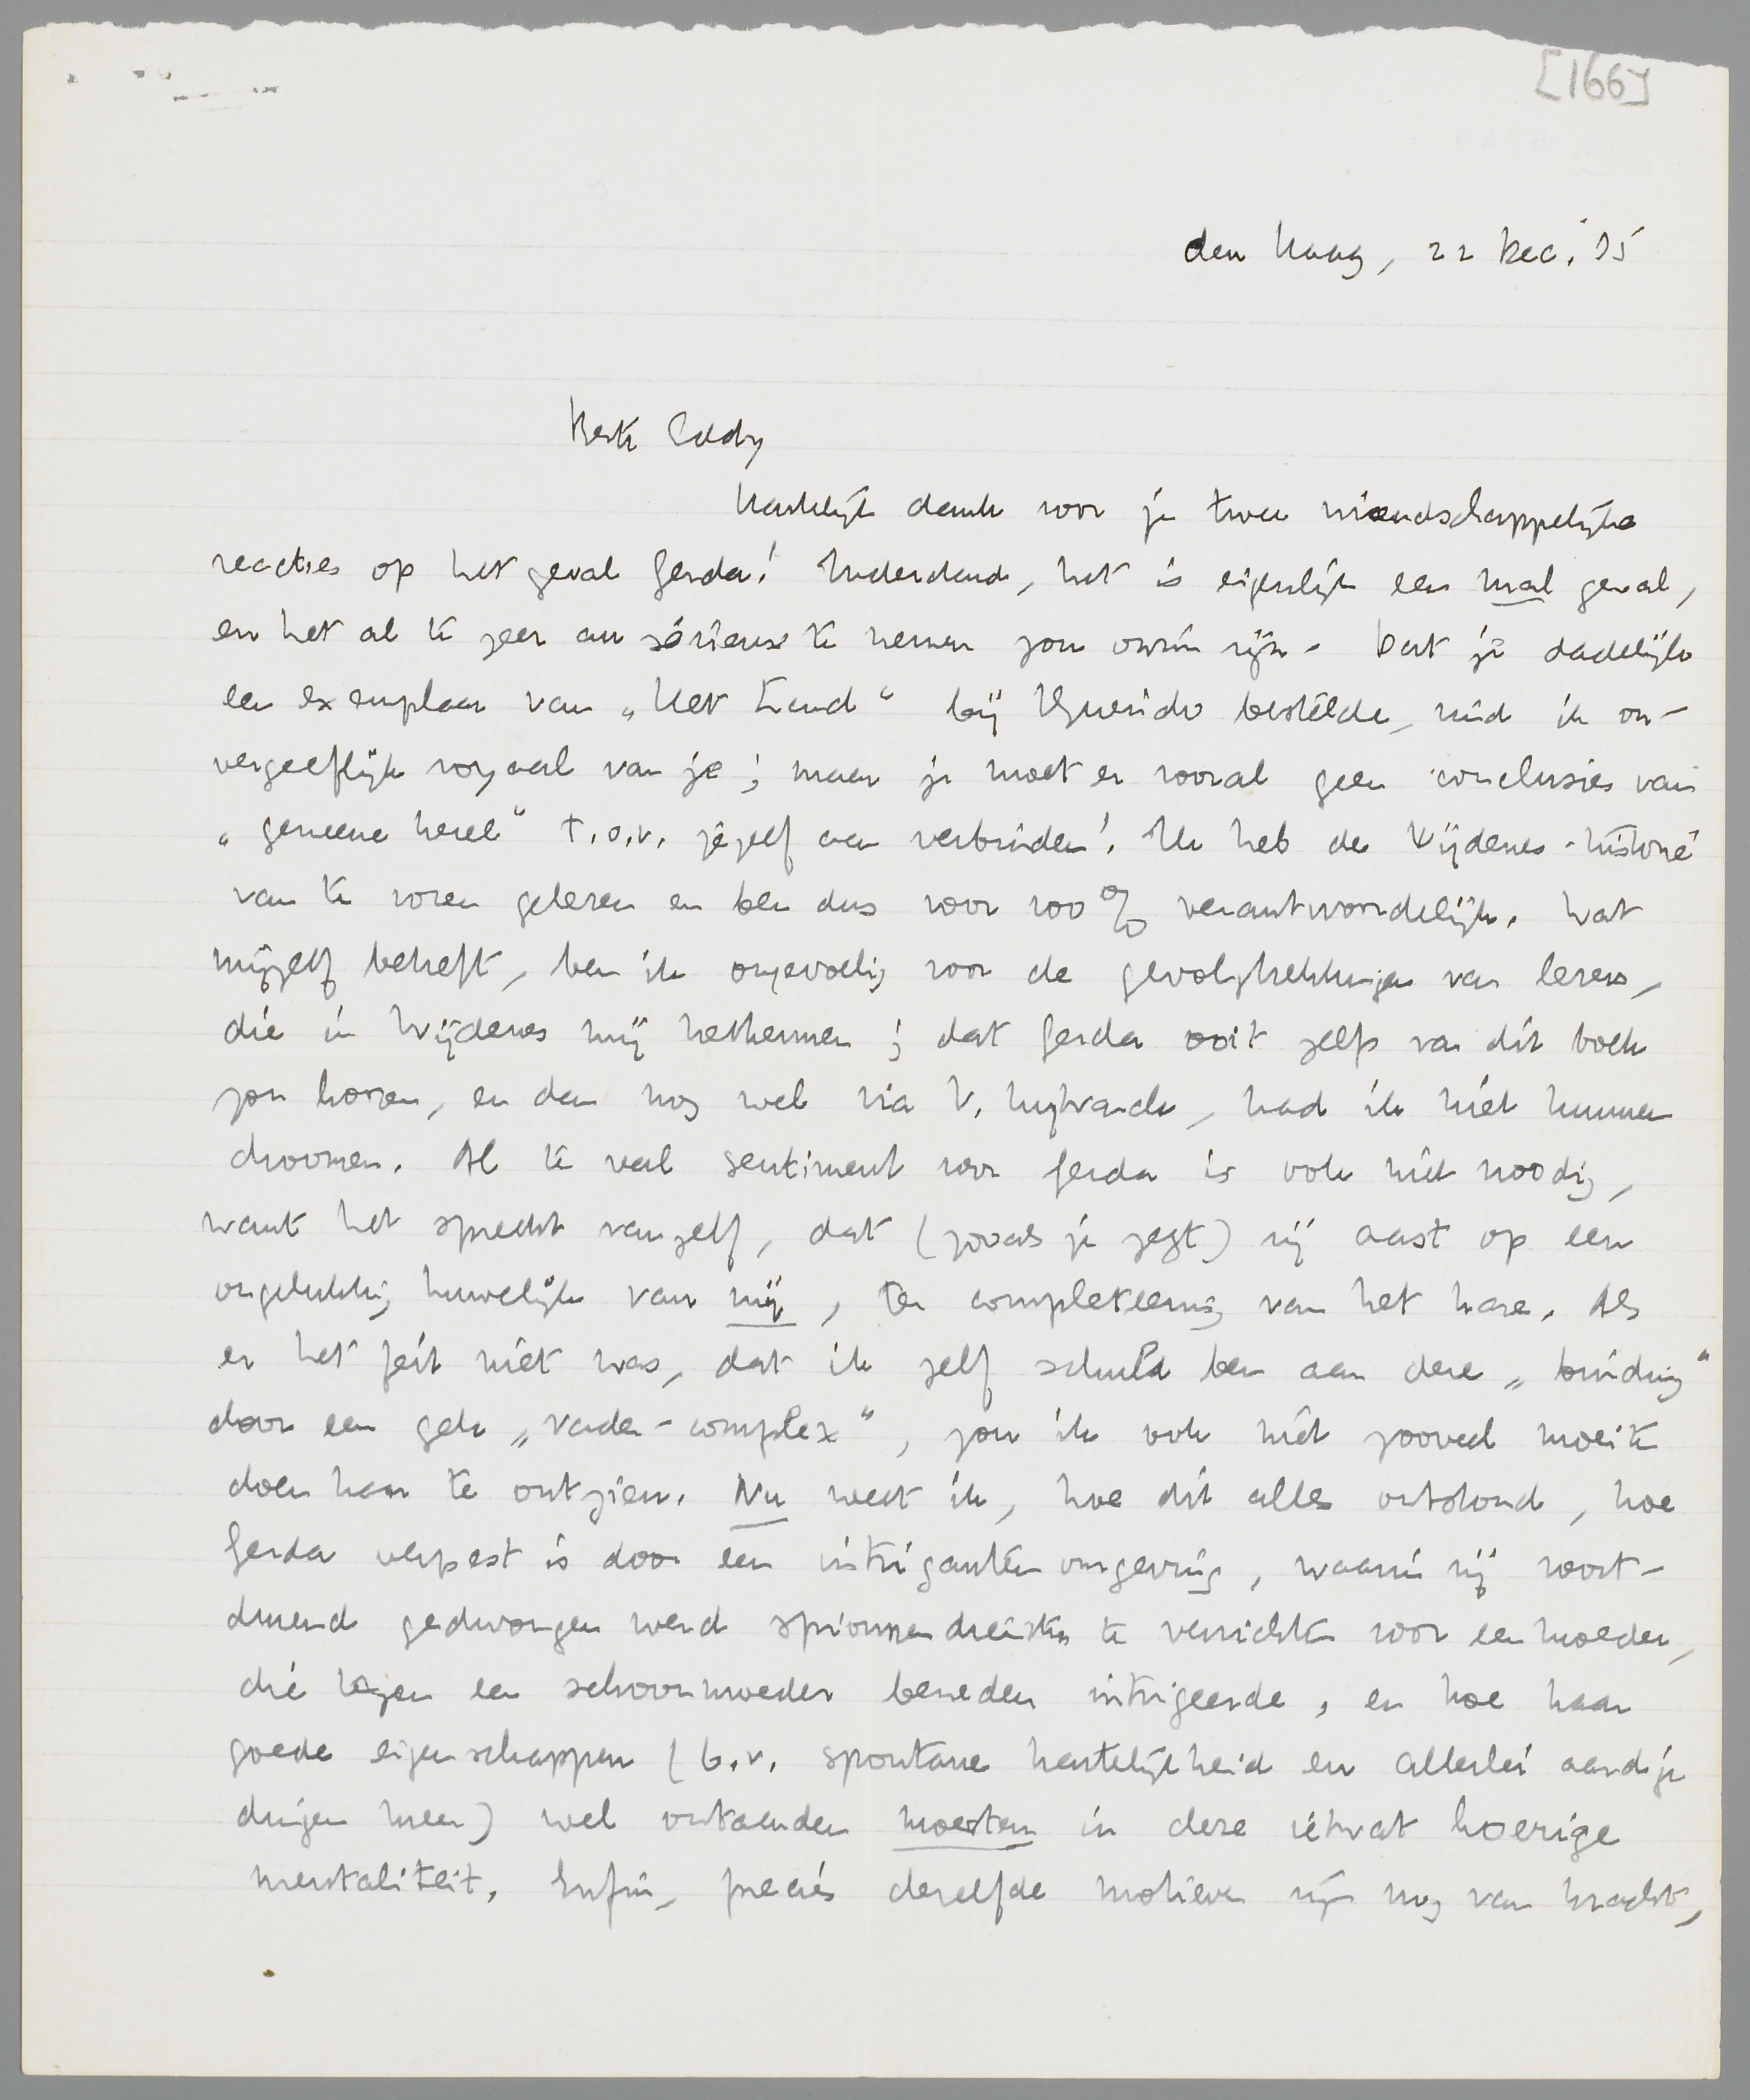 [166]
den Haag, 22 Dec. '35
Beste Eddy
Hartelijk dank voor je twee vriendschappelijke
reacties op het geval Gerda! Inderdaad, het is eigenlijk een mal geval,
en het al te zeer au sérieux te nemen zou onzin zijn. Dat je dadelijk
een exemplaar van „Het Land" bij Querido bestelde, vind ik on-
vergeeflijk royaal van je; maar je moet er vooral geen conclusies van
„gemeene kerel" t.o.v. jezelf aan verbinden! Ik heb de Wijdenes-historie
van te voren gelezen en ben dus voor 100% verantwoordelijk. Wat
mijzelf betreft, ben ik ongevoelig voor de gevolgtrekkingen van lezers,
die in Wijdenes mij herkennen; dat Gerda ooit zelfs van dit boek
zou hooren, en dan nog wel via V., had ik niet kunnen
droomen. Al te veel sentiment voor Gerda is ook niet noodig,
want het spreekt vanzelf, dat (zooals je zegt) zij aast op een
ongelukkig huwelijk van mij, ter completeering van het hare. Als
er het feit niet was, dat ik zelf schuld ben aan deze „binding"
door een gek „vader-complex", zou ik ook niet zooveel moeite
doen haar te ontzien. Nu weet ik, hoe dit alles ontstond, hoe
Gerda verpest is door een intriganten omgeving, waarin zij voort-
durend gedwongen werd spionnendiensten te verrichten voor een moeder,
die tegen een schoonmoeder beneden intrigeerde, en hoe haar
goede eigenschappen (b.v. spontane hartelijkheid en allerlei aardige
dingen meer) wel ontaarden moesten in deze ietwat hoerige
mentaliteit. Enfin, precies dezelfde motieven zijn nog van kracht,